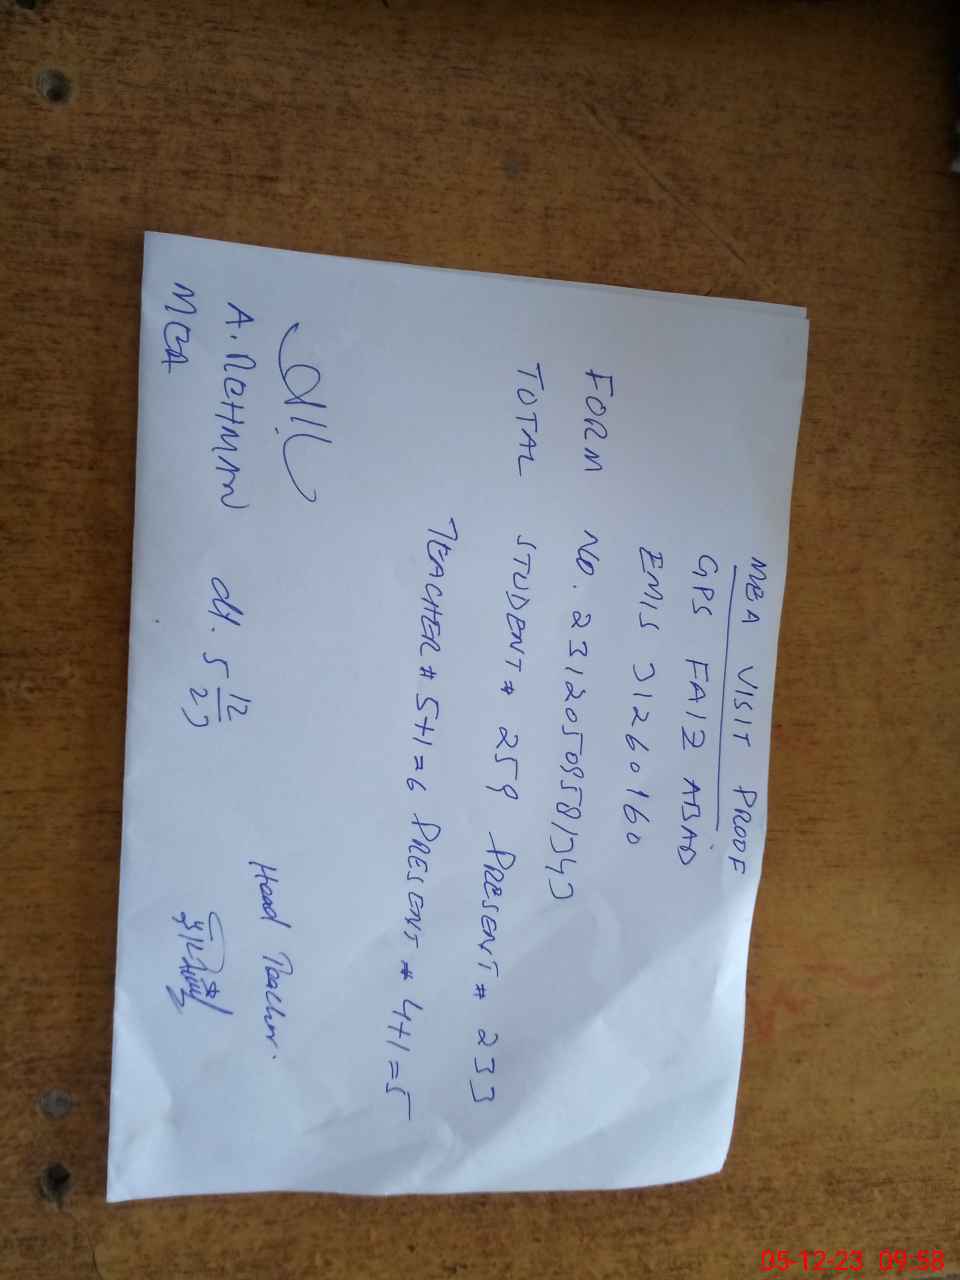 MEA VISIT PROOF
GPS FAIZ ABAD
EMIS 31260160
FORM NO. 23120509581343
TOTAL STUDENT # 259 PRESENT # 233
TEACHER # 5+1=6 PRESENT # 4+1=5
Head Teacher.
A. REHMAN dt. 5 12/23
MEA
05-12-23 09:58